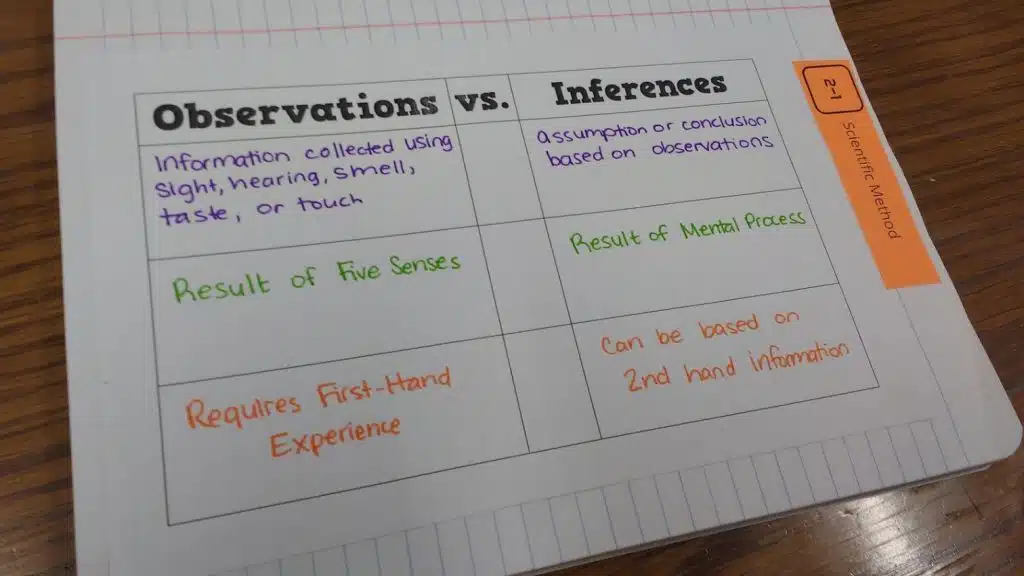 Observations vs. Inferences
Information collected using
sight, hearing, smell,
taste, or touch
assumption or conclusion
based on observations
Result of Five Senses
Result of Mental Process
Requires First-Hand
Experience
Can be based on
2nd hand information
2-1
Scientific Method